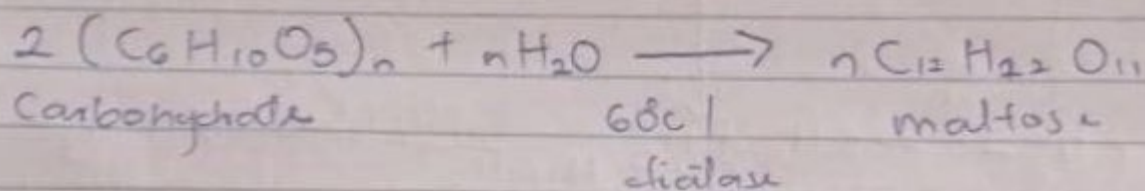 2 (C₆H₁₀O₅)ₙ + nH₂O ⟶ nC₁₂H₂₂O₁₁
Carbohydrate 60c | maltose
diastase